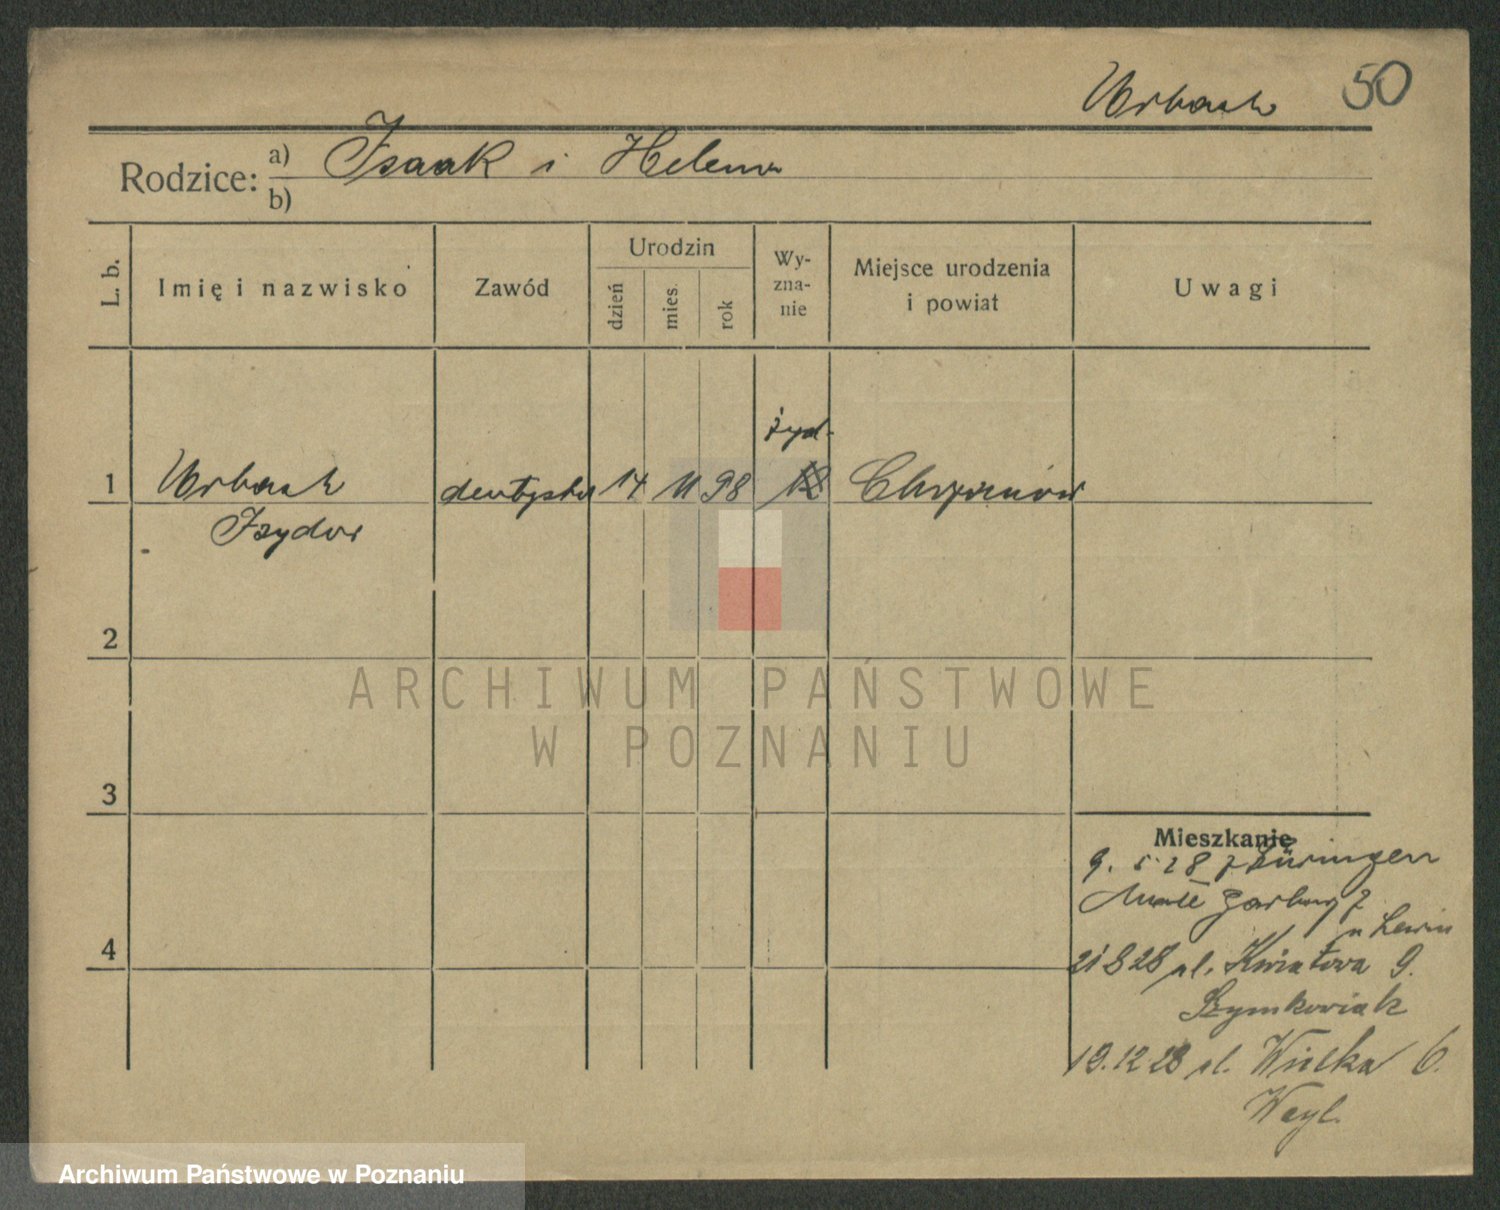 Urbach 50
Rodzice: a) Izaak i Helena
b)
L. b.
Imię i nazwisko
Zawód
Urodzin
dzień
mies.
rok
Wy-
zna-
nie
Miejsce urodzenia
i powiat
Uwagi
żyd.
1 Urbach dentysta 14 11 98 Chrzanów
Izydor
2
3
4
Mieszkanie
9. 5 28 z Thüringen
Małe Garbary 7
u Lewin
21 8 28 ul. Kwiatowa 9.
Szymkowiak
19.12 28 ul. Wielka 6.
Weyl.
ARCHIWUM PAŃSTWOWE
W POZNANIU
Archiwum Państwowe w Poznaniu